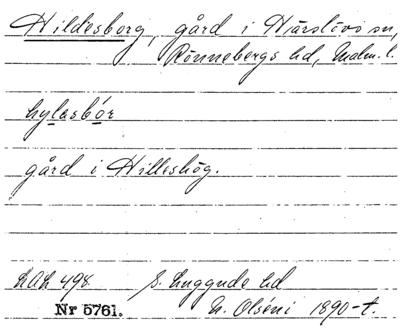 Hildesborg, gård i Härslövs sn,
Rönnebergs hd, Malm. l.
hylasbór
gård i Hilleshög.
LAL 498. S. Luggude hd
Nr 5761. N. Olséni 1890-t.